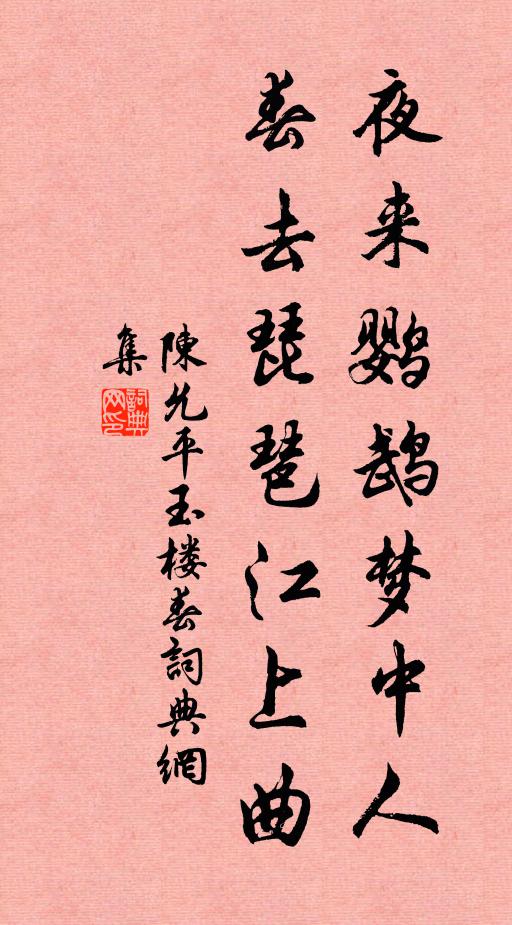 夜来鹦鹉梦中人
春去琵琶江上曲
陳允平玉楼春詞典網
集
詞典
网印